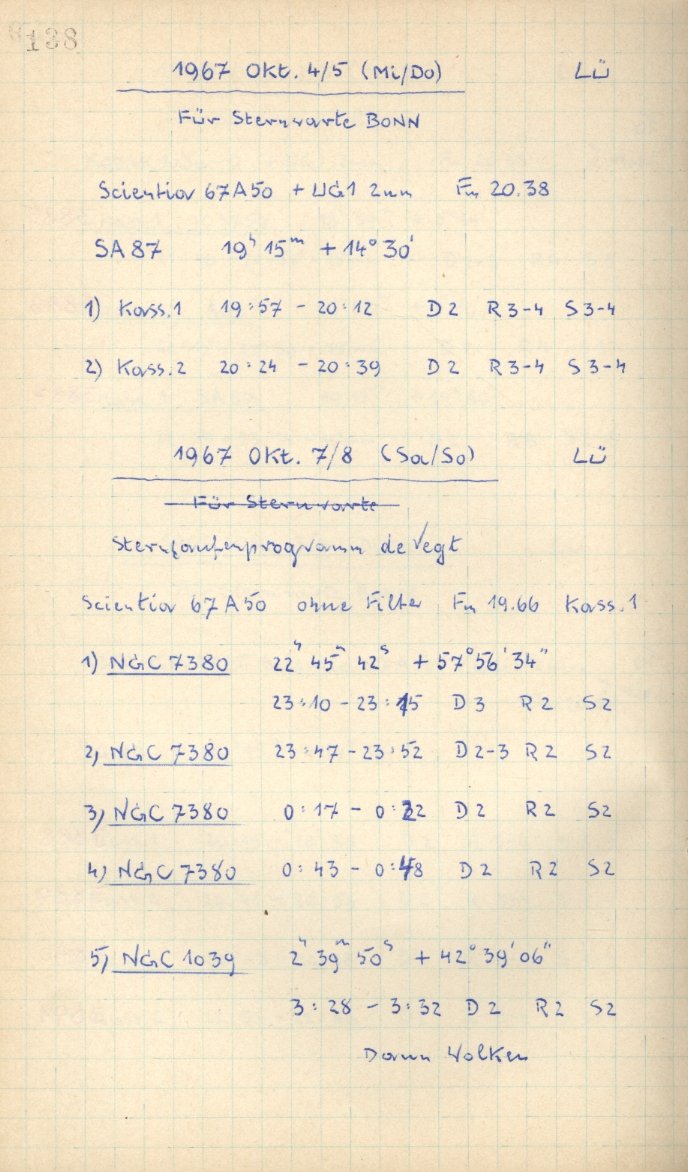 138
1967 Okt. 4/5 (Mi/Do) LÜ
Für Sternwarte BONN
Scientia 67A50 + UG1 2mm Fn 20.38
SA 87 19h 15m + 14° 30'
1) Kass.1 19:57 - 20:12 D2 R3-4 S3-4
2) Kass.2 20:24 - 20:39 D2 R3-4 S3-4
1967 Okt. 7/8 (Sa/So) LÜ
Für Sternwarte
Sternhaufenprogramm de Vegt
Scientia 67A50 ohne Filter Fn 19.66 Kass.1
1) NGC 7380 22h 45m 42s + 57° 56' 34"
23:10 - 23:15 D3 R2 S2
2) NGC 7380 23:47 - 23:52 D2-3 R2 S2
3) NGC 7380 0:17 - 0:22 D2 R2 S2
4) NGC 7380 0:43 - 0:48 D2 R2 S2
5) NGC 1039 2h 39m 50s + 42° 39' 06"
3:28 - 3:32 D2 R2 S2
Dann Wolken